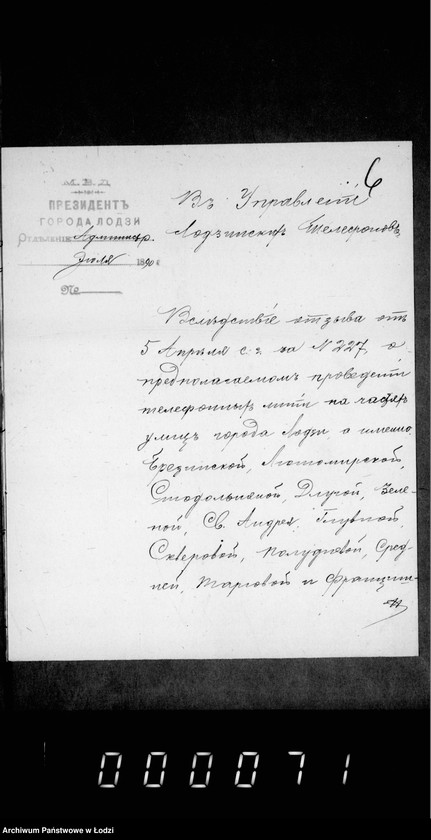 6
М. В. Д.
ПРЕЗИДЕНТЪ
ГОРОДА ЛОДЗИ
Отдѣленіе Админстр.
Іюля 1890 г
№
Въ Управленіе
Лодзинскихъ Телефоновъ
Вслѣдствіе отзыва отъ
5 Апрѣля с. г. за № 227, о
предполагаемомъ проведеніи
телефонныхъ линій на частяхъ
улицъ города Лодзи, а именно:
Бржезинской, Лютомирской,
Стодольняной, Длугой, Зеле-
ной, Св. Андрея, Глувной
Скверовой, Полудневой, Сред-
ней, Тарговой и Францишк-
000071
Archiwum Państwowe w Łodzi